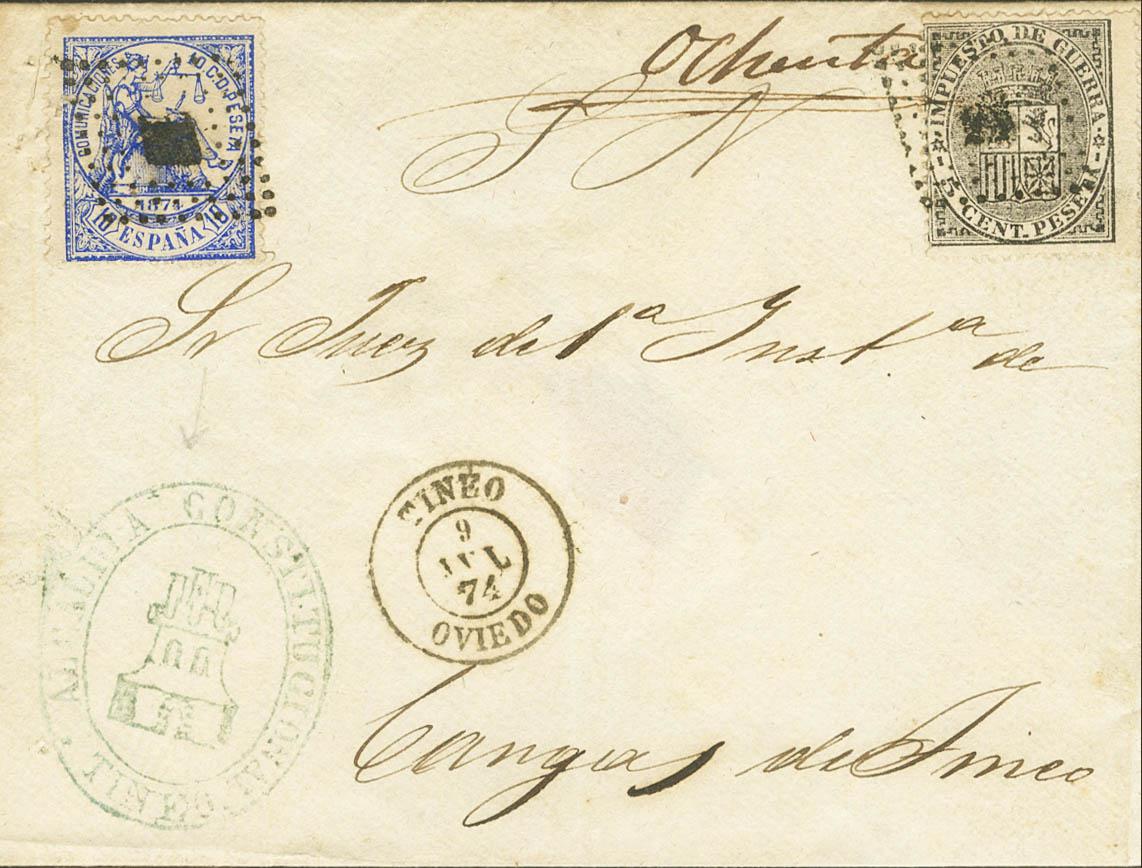 COMUNICACIONES 10 C. D. PESETA
1874
10 ESPAÑA 10
Ochenta
S N
IMPUESTO DE GUERRA
5 CENT. PESETA
Sr Juez de 1ª Instª de
TINEO
9
JUL
74
OVIEDO
ALCALDIA CONSTITUCIONAL
TINEO
Cangas de Tineo